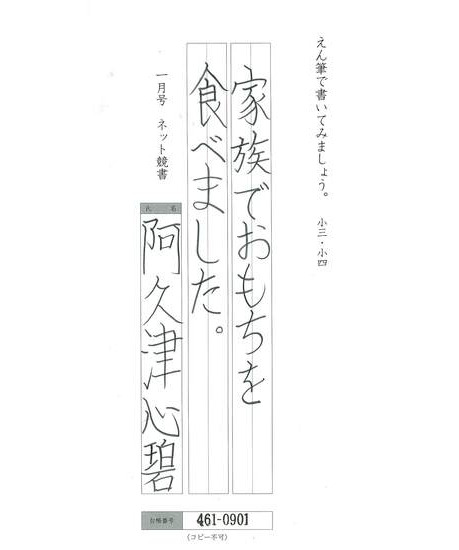 えん筆で書いてみましょう。 小三・小四
家族でおもちを
食べました。
一月号 ネット競書
氏名
阿久津心碧
台帳番号 461-0901
(コピー不可)